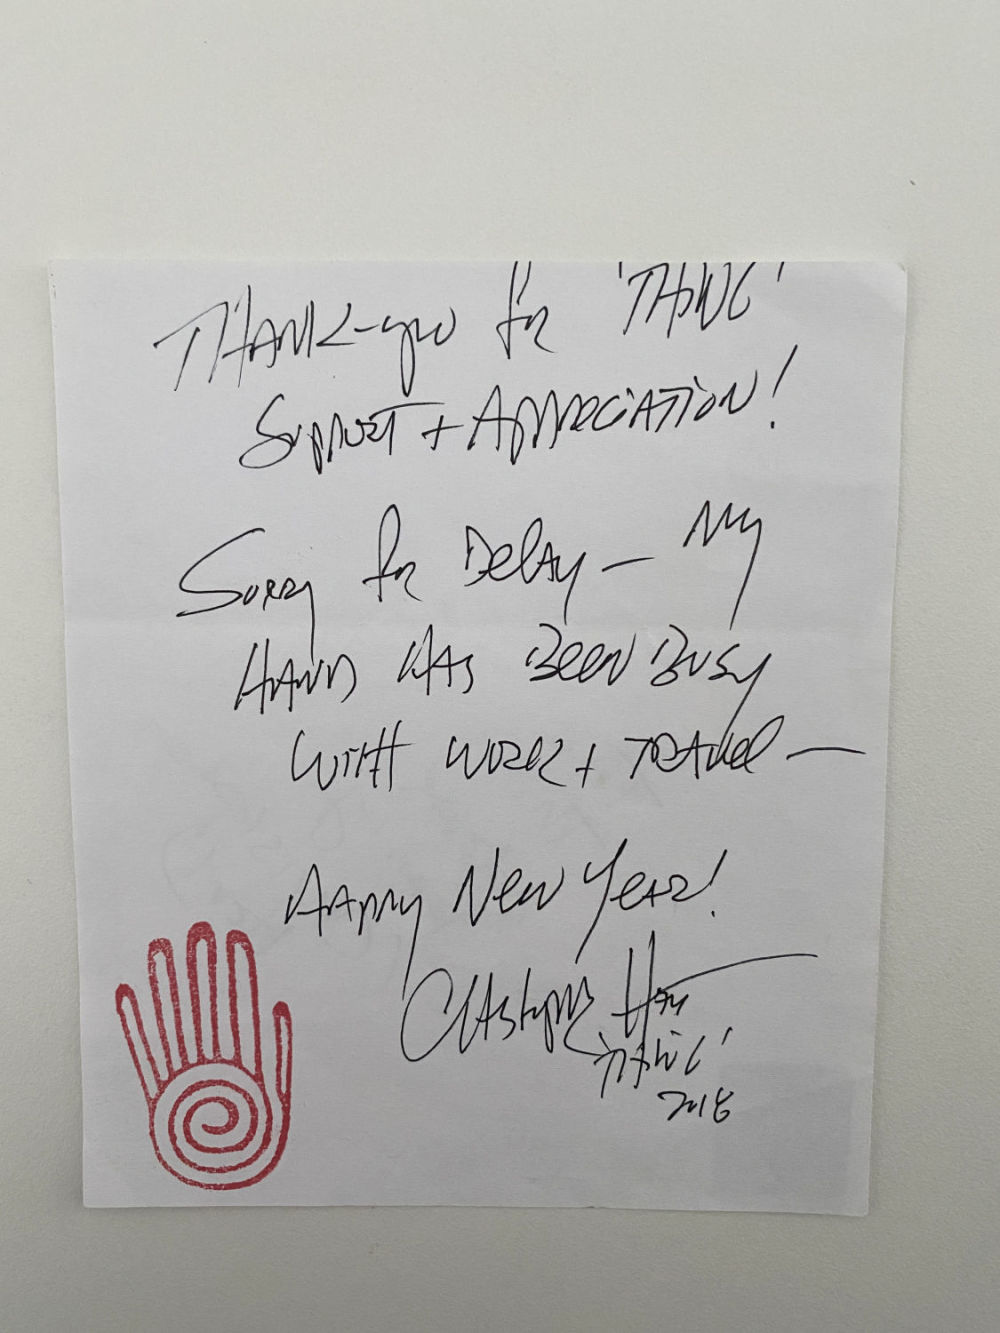 THANK-you for 'THING'
Support + Appreciation!
Sorry for Delay - My
HAND HAS BEEN BUSY
WITH WORK + TRAVEL -
HAPPY New Year!
Christopher Hart
'THING'
2018